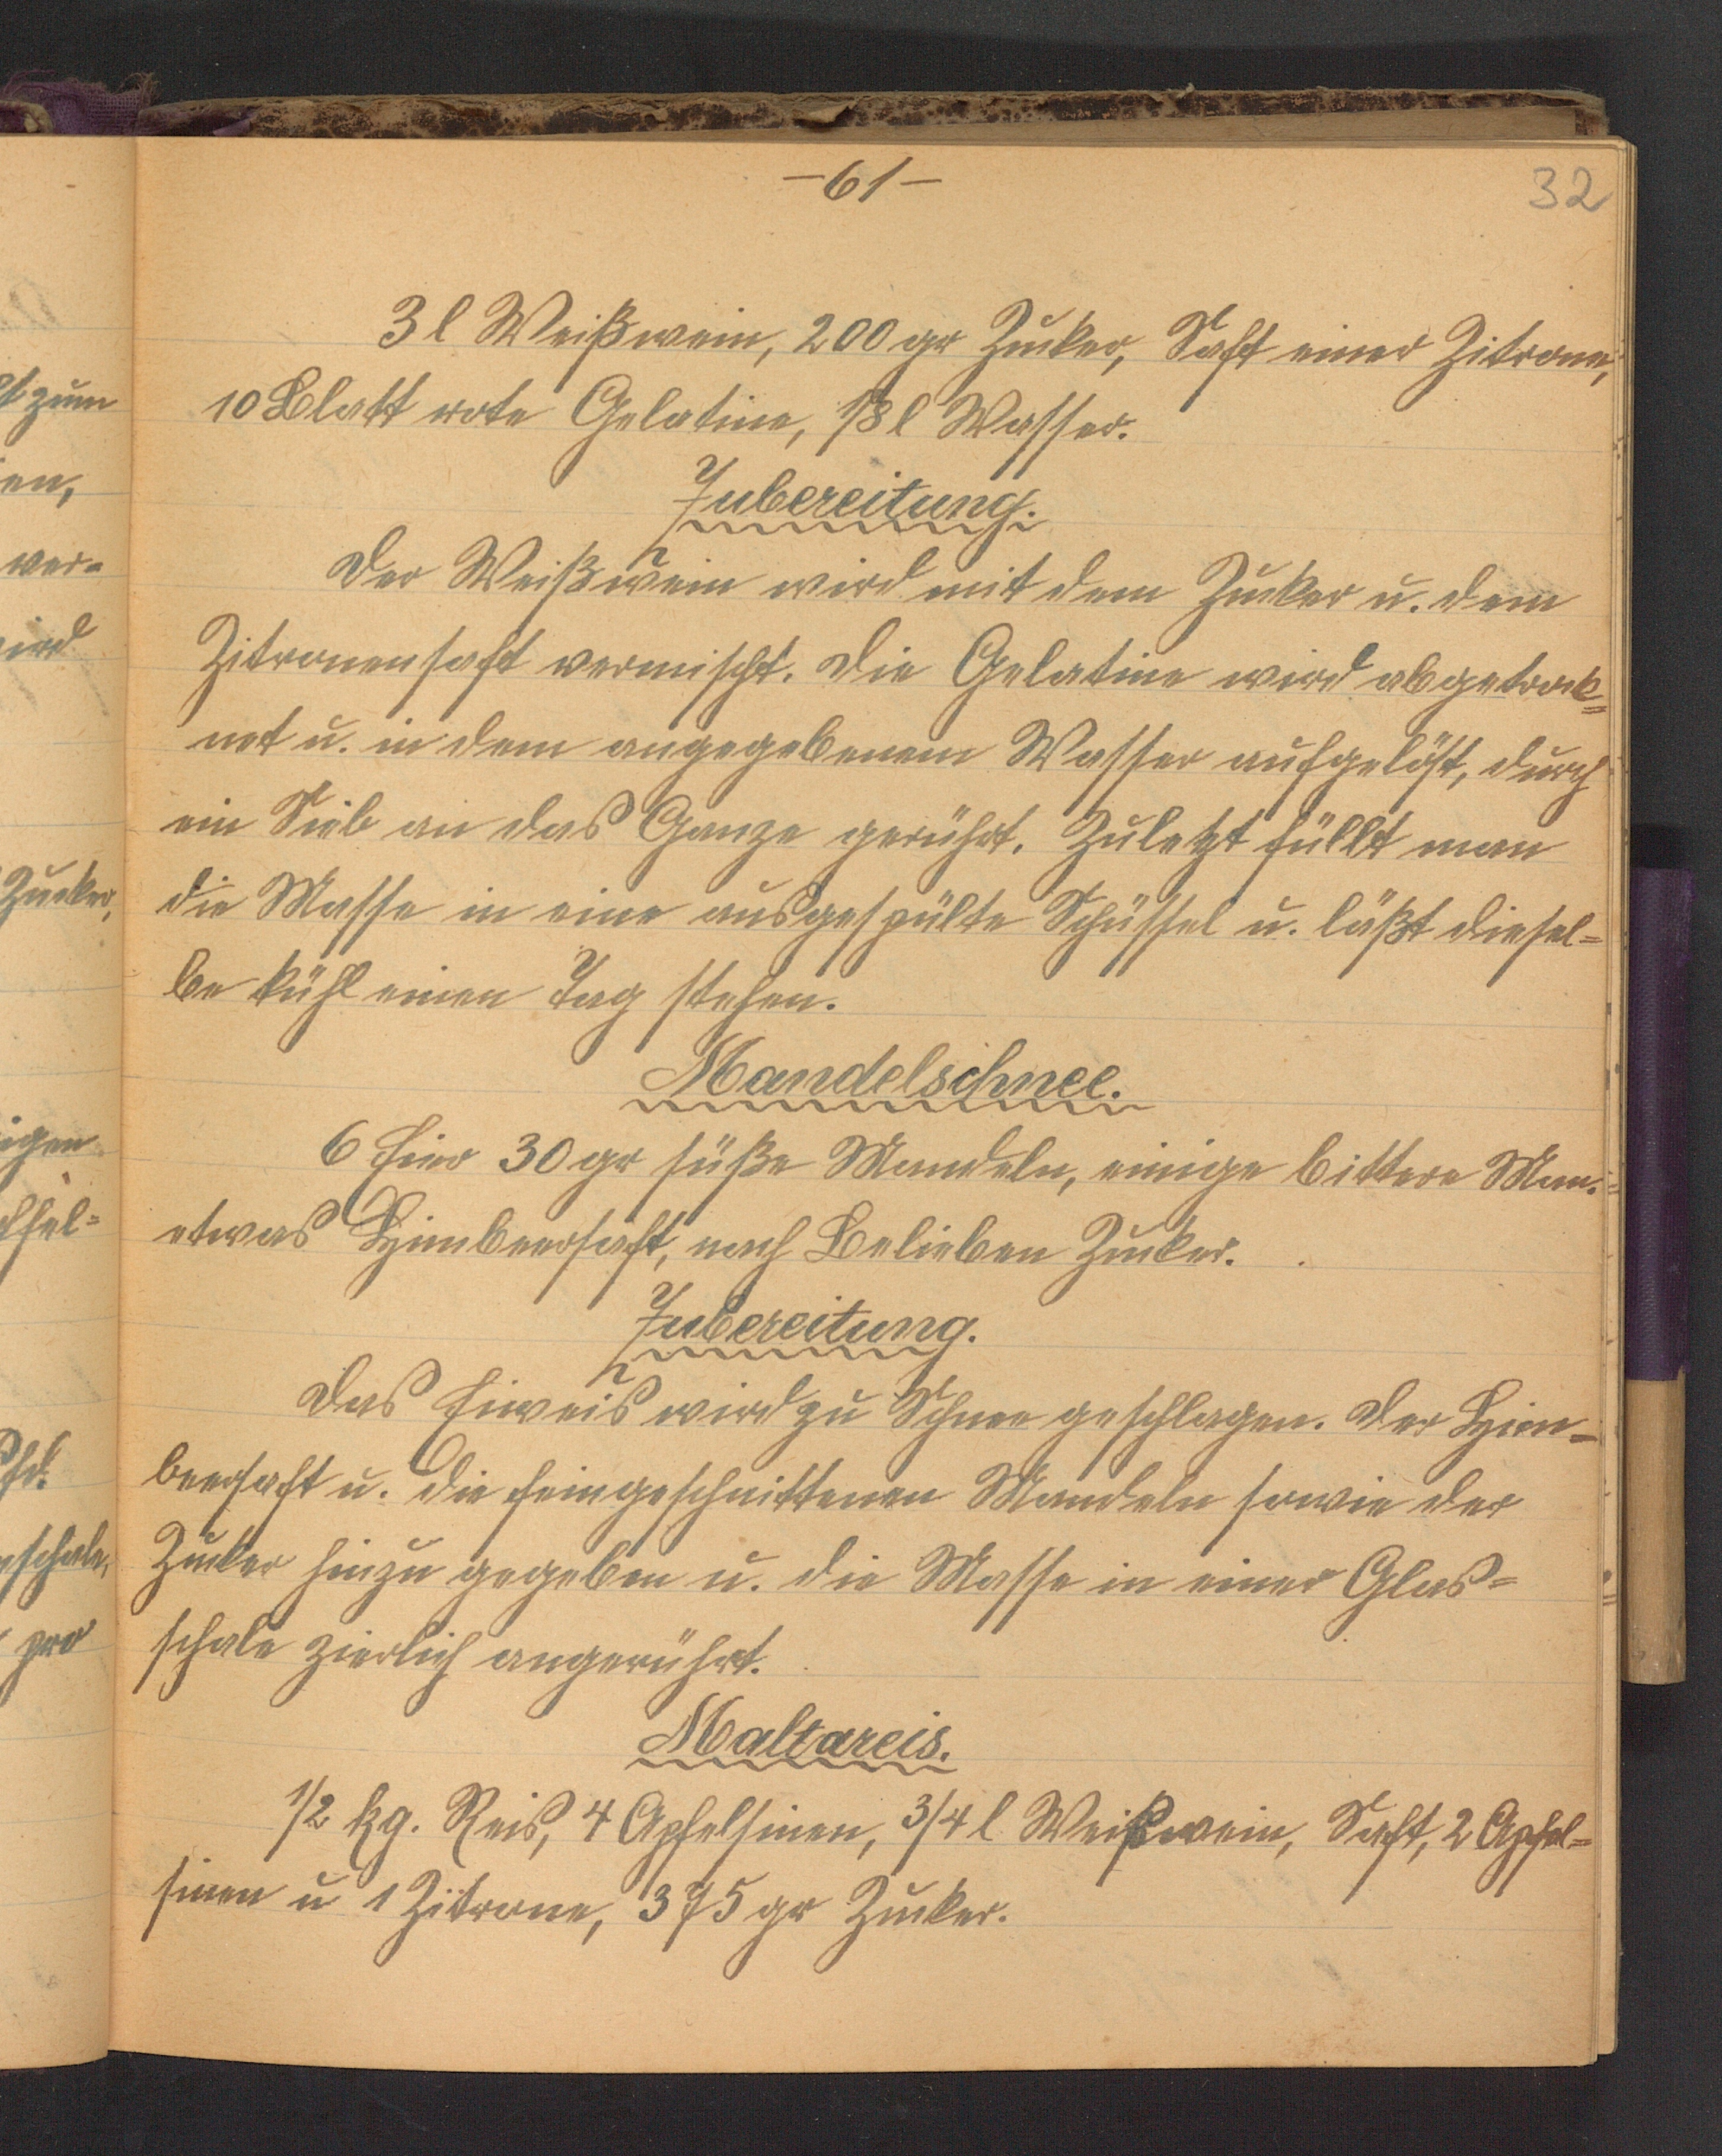 -61-
32
3 l Weißwein, 200 gr Zucker, Saft einer Zitrone,
10 Blatt rote Gelatine, 1/8 l Wasser.
Zubereitung.
Der Weißwein wird mit dem Zucker u. dem
Zitronensaft vermischt. Die Gelatine wird abgetrock=
net u. in dem angegebenem Wasser aufgelöst, durch
ein Sieb an das Ganze gerührt. Zuletzt füllt man
die Masse in eine ausgespülte Schüssel u. läßt diesel=
be kühl einen Tag stehen.
Mandelschnee.
6 Eier 30 gr süße Mandeln, einige bittere Man.
etwas Himbeersaft, nach Belieben Zucker.
Zubereitung.
Das Eiweis wird zu Schnee geschlagen. Der Him=
beersaft u. die feingeschnittenen Mandeln sowie der
Zucker hinzu gegeben u. die Masse in einer Glas=
schale zierlich angerührt.
Maltareis.
1/2 kg. Reis, 4 Apfelsinen, 3/4 l Weißwein, Saft, 2 Apfel=
sinen u 1 Zitrone, 375 gr Zucker.